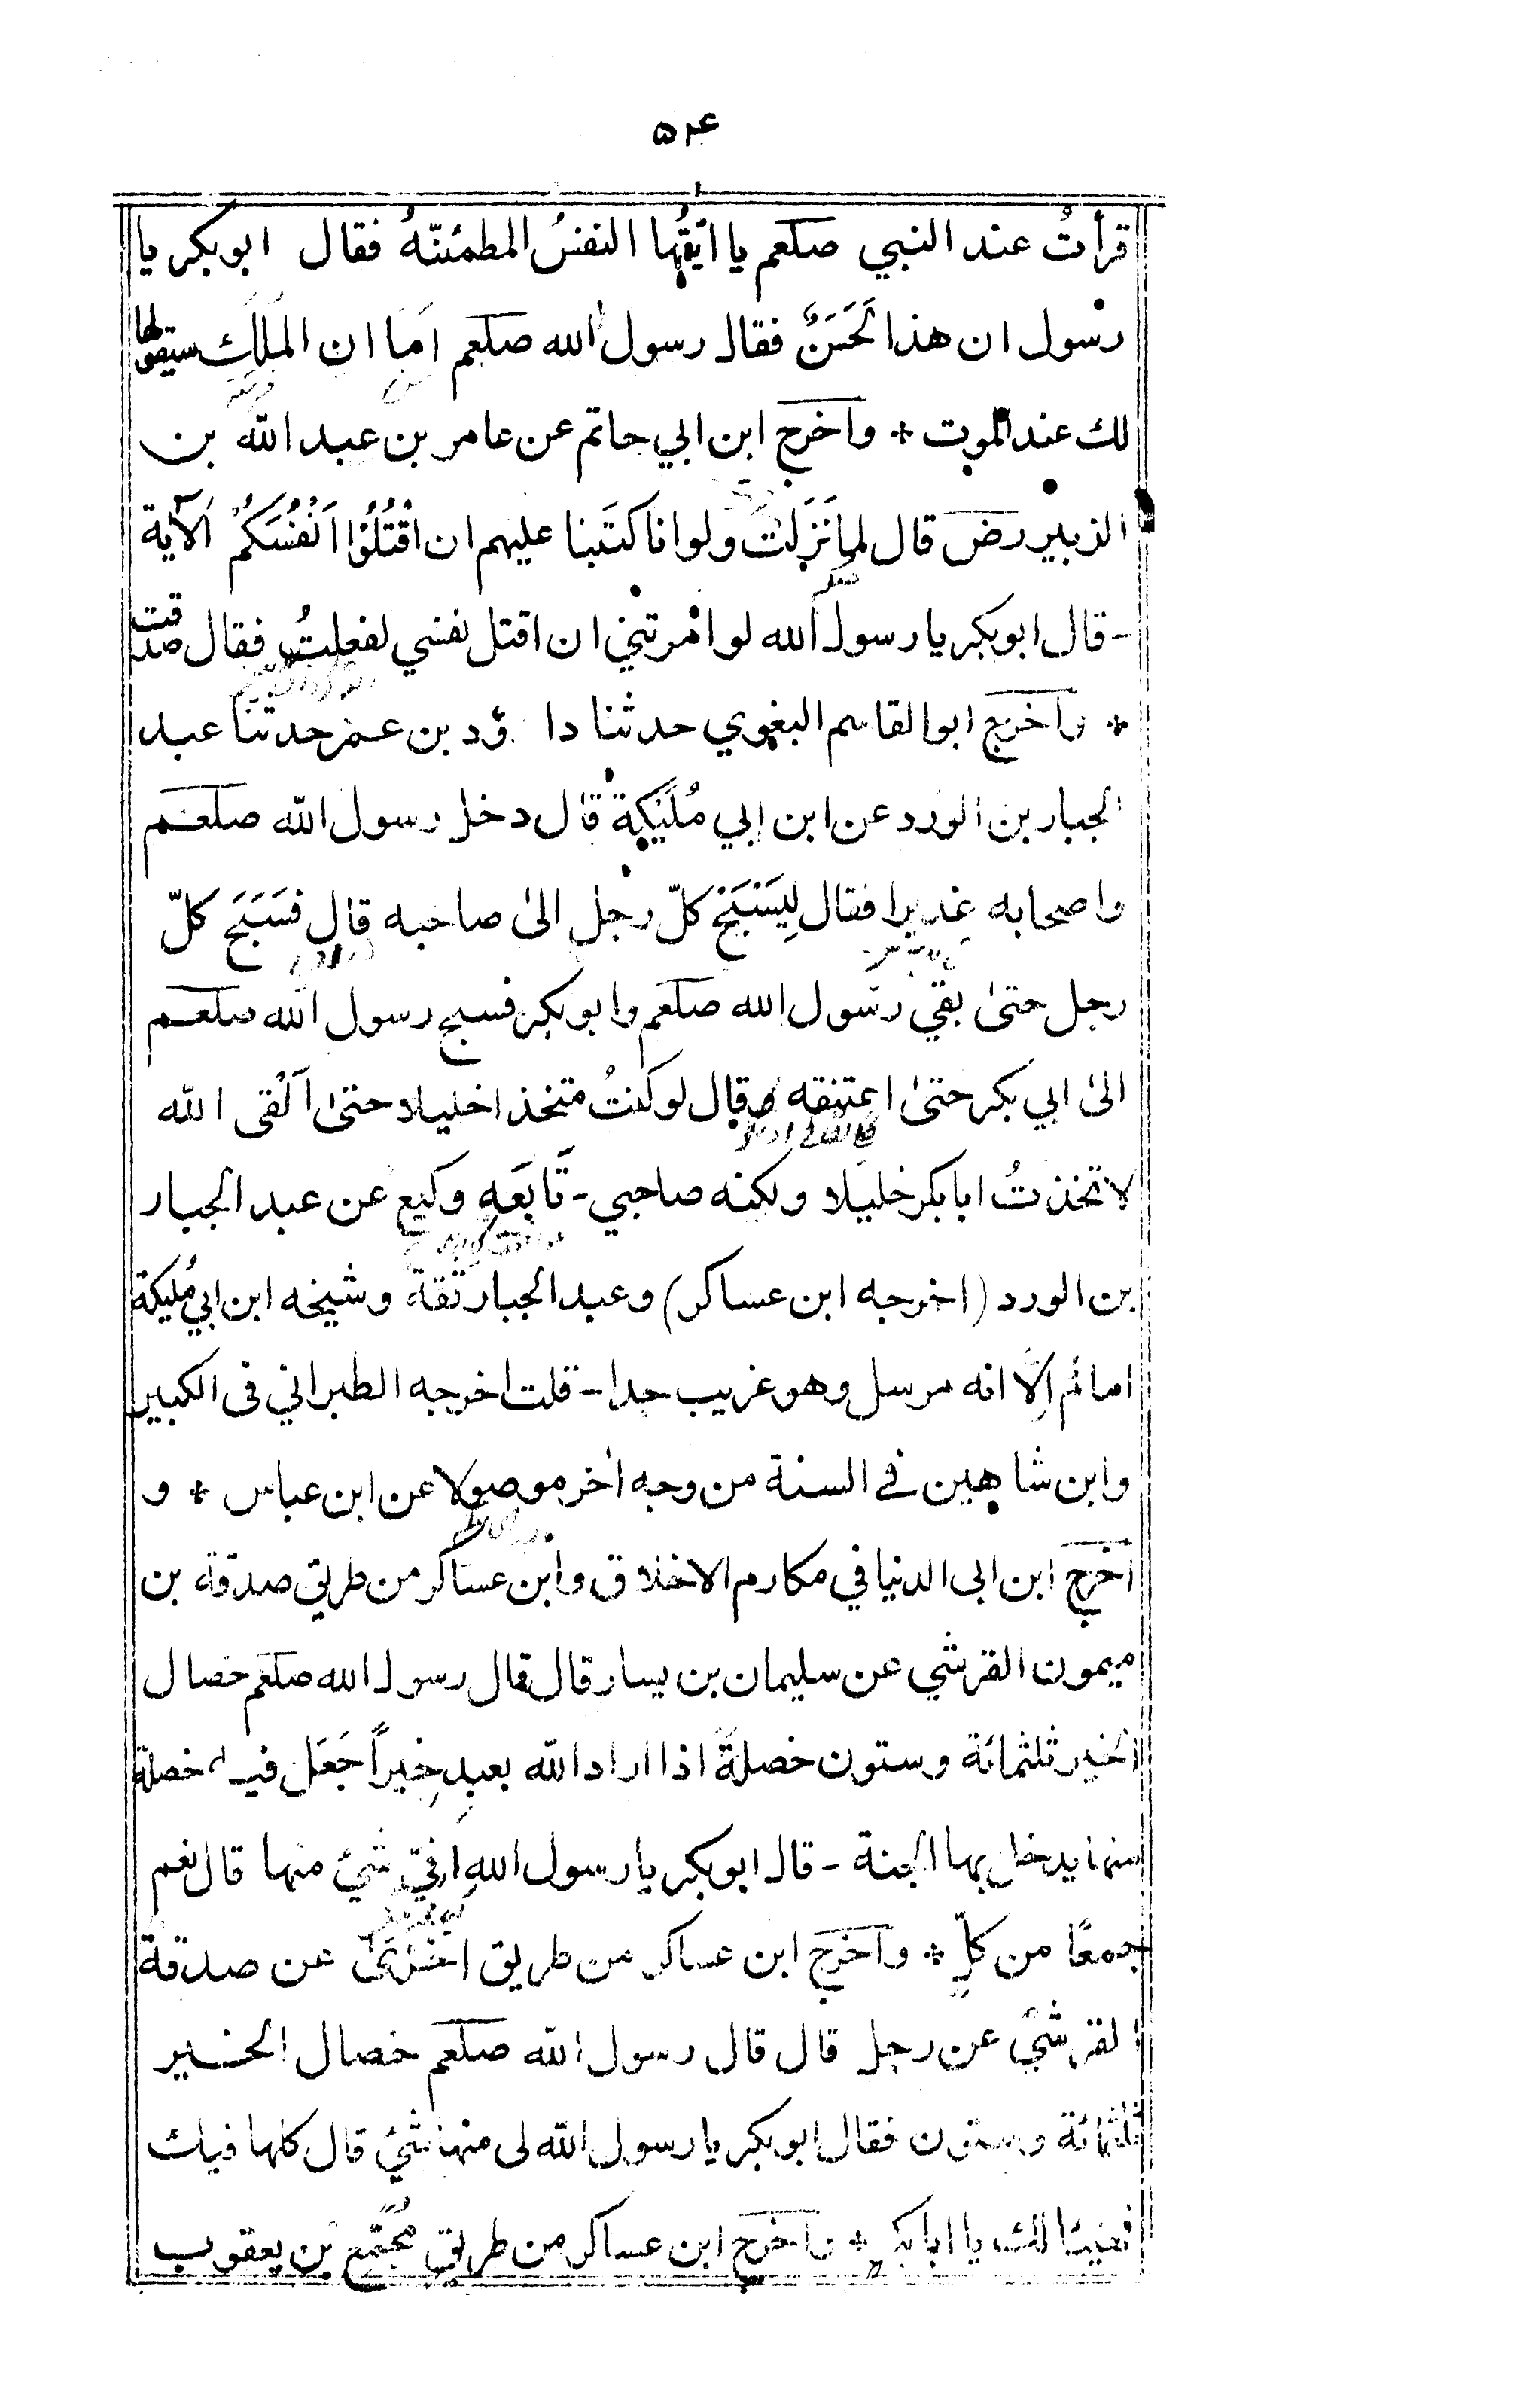 ۵۴
قرأتُ عند النبي صلعم يا ايّتُها النفسُ المطمئنّهُ فقال ابوبكر يا
رسول ان هذا لَحَسَنٌ فقال رسول الله صلعم اَما ان المَلَك سيقولها
لك عند الموت * واخرج ابن ابي حاتم عن عامر بن عبد الله بن
الزبير رض قال لما نَزَلَتْ ولو انا كتَبنا عليهم ان اقْتُلُوْا اَنْفُسَكُمْ الآية
- قال ابوبكر يا رسول الله لو امرتني ان اقتل نفسي لفعلتُ فقال صدقت
* واخرج ابو القاسم البغوي حدثنا داؤد بن عمر حدثنا عبد
الجبار بن الورد عن ابن ابي مُلَيْكة قال دخل رسول الله صلعم
واصحابه غديرا فقال لِيَسْبَحْ كلّ رجل الىٰ صاحبه قال فَسَبَحَ كلّ
رجل حتىٰ بقي رسول الله صلعم وابوبكر فسبح رسول الله صلعم
الىٰ ابي بكر حتىٰ اعتنقه وقال لو كنتُ متخذا خليلا حتىٰ اَلْقى الله
لاتخذتُ ابابكر خليلا ولكنه صاحبي - تَابَعَه وكيع عن عبد الجبار
بن الورد (اخرجه ابن عساكر) وعبد الجبار ثقة وشيخه ابن ابي مُليكة
امام اِلّا انه مرسل وهو غريب جدا - قلت اخرجه الطبراني فى الكبير
وابن شاهين في السنة من وجه اٰخر موصولا عن ابن عباس * و
اخرج ابن ابى الدنيا في مكارم الاخلاق وابن عساكر من طريق صدقة بن
ميمون القرشي عن سليمان بن يسار قال قال رسول الله صلعم خصال
الخير ثلثمائة وستون خصلةً اذا اراد الله بعبدٍ خيراً جَعَل فيه خصلة
منها يدخل بها الجنة - قال ابوبكر يا رسول الله اَفيّ شيئ منها قال نعم
جمعًا من كلٍّ * واخرج ابن عساكر من طريق اخرىٰ عن صدقة
القرشيّ عن رجل قال قال رسول الله صلعم خصال الخير
ثلثمائة وستون فقال ابوبكر يا رسول الله لى منها شيئ قال كلها فيك
فهنيئا لك يا ابابكر * واخرج ابن عساكر من طريق مُجَمّع بن يعقوب